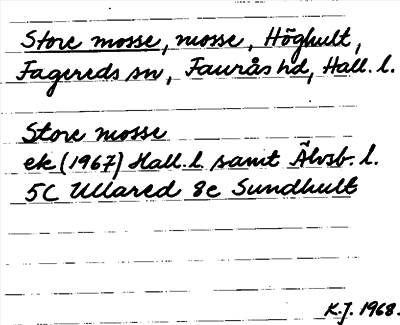 Store mosse, mosse, Höghult,
Fagereds sn, Faurås hd, Hall. l.
Store mosse
ek (1967) Hall. l. samt Älvsb. l.
5C Ullared 8e Sundhult
K.J. 1968.